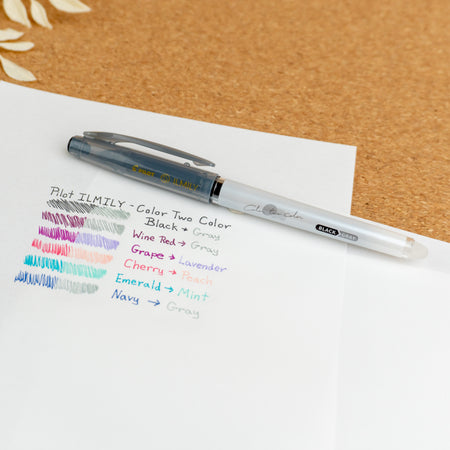 Pilot ILMILY - Color Two Color
Black → Gray
Wine Red → Gray
Grape → Lavender
Cherry → Peach
Emerald → Mint
Navy → Gray
BLACK GRAY